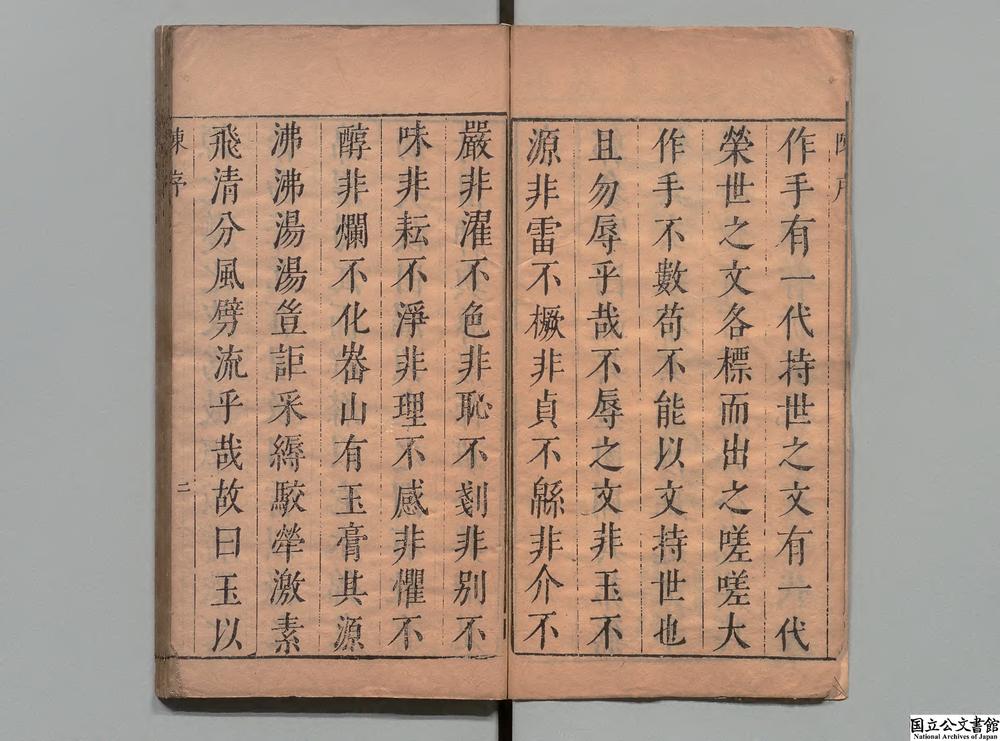 作手有一代持世之文有一代
榮世之文各標而出之嗟嗟大
作手不數苟不能以文持世也
且勿辱乎哉不辱之文非玉不
源非雷不橛非貞不緜非介不
嚴非濯不色非恥不剗非別不
味非耘不淨非理不感非懼不
醇非爛不化峚山有玉膏其源
沸沸湯湯豈詎采縟駮犖激素
飛清分風劈流乎哉故曰玉以
陳序
二
国立公文書館
National Archives of Japan